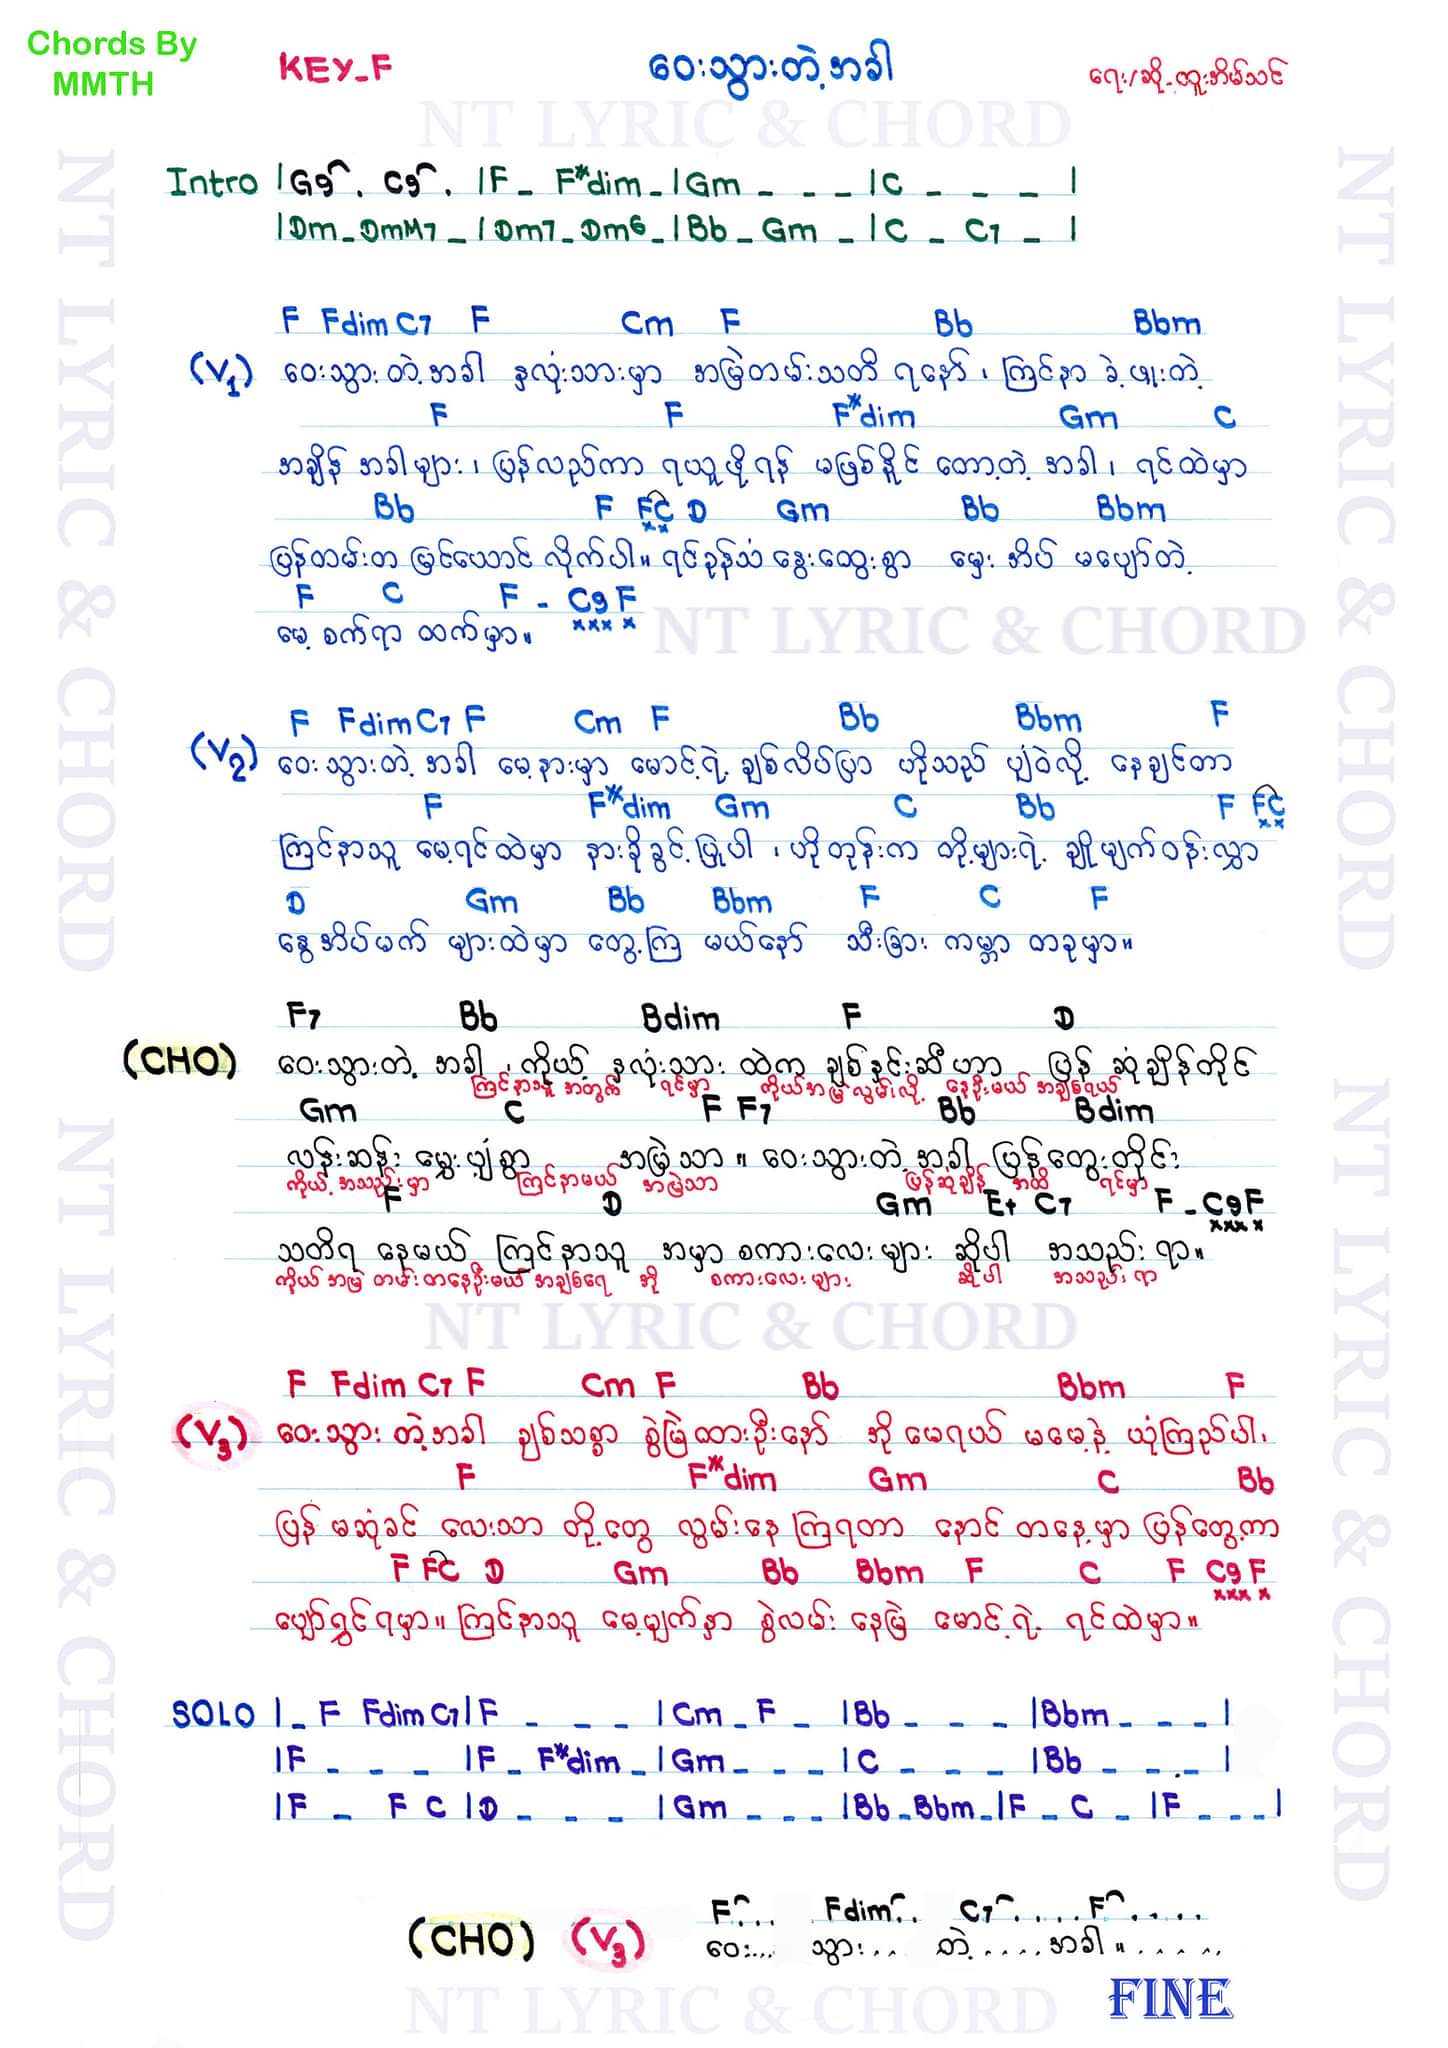 Chords By
MMTH
KEY_F
ဝေးသွားတဲ့အခါ
ရေး/ဆို-ထူးအိမ်သင်
NT LYRIC & CHORD
Intro |G9 . C9 . |F _ F*dim _ |Gm _ _ _ |C _ _ _ |
|Dm _ DmM7 _ |Dm7 _ Dm6 _ |Bb _ Gm _ |C _ C7 _ |
F Fdim C7 F Cm F Bb Bbm
(V1) ဝေးသွားတဲ့အခါ နှလုံးသားမှာ အမြဲတမ်းသတိ ရနော်၊ ကြင်နာ ခဲ့ဖူးတဲ့
F F F*dim Gm C
အချိန် အခါများ၊ ပြန်လည်ကာ ရယူဖို့ရန် မဖြစ်နိူင် တော့တဲ့ အခါ၊ ရင်ထဲမှာ
Bb F FC D Gm Bb Bbm
ပြန်တမ်းတ မြင်ယောင် လိုက်ပါ။ ရင်ခုန်သံ နွေးထွေးစွာ မှေးအိပ် မပျော်တဲ့
F C F - C9 F
မေ့ စက်ရာ ထက်မှာ။
NT LYRIC & CHORD
F Fdim C7 F Cm F Bb Bbm F
(V2) ဝေးသွားတဲ့ အခါ မေ့နားမှာ မောင့်ရဲ့ ချစ်လိပ်ပြာ ဟိုသည် ပျံဝဲလို့ နေချင်တာ
F F*dim Gm C Bb F FC
ကြင်နာသူ မေ့ရင်ထဲမှာ နားခိုခွင့်ပြုပါ ၊ ဟိုတုန်းက တို့များရဲ့ ချိုမျက်ဝန်းလွှာ
D Gm Bb Bbm F C F
နွေအိပ်မက် များထဲမှာ တွေ့ကြ မယ်နော် သီးခြား ကမ္ဘာ တခုမှာ။
F7 Bb Bdim F D
(CHO) ဝေးသွားတဲ့ အခါ ၊ကိုယ့် နှလုံးသား ထဲက ချစ်နှင်းဆီဟာ ပြန် ဆုံချိန်တိုင်
ကြင်နာသူ အတွက် ရင်မှာ ကိုယ်အမြဲလွမ်းလို့ နေဦးမယ် အချစ်ရယ်
Gm C F F7 Bb Bdim
လန်းဆန်း မွှေးပျံ့စွာ အမြဲသာ ။ ဝေးသွားတဲ့ အခါ ပြန်တွေးတိုင်း
ကိုယ့် အသည်းမှာ ကြင်နာမယ် အမြဲသာ ပြန်ဆုံချိန် အထိ ရင်မှာ
F D Gm E+ C7 F - C9 F
သတိရ နေမယ် ကြင်နာသူ အမှာ စကားလေးများ ဆိုပါ အသည်းရာ။
ကိုယ်အမြဲ တမ်းတနေဦးမယ် အချစ်ရေ အို စကားလေးများ ဆိုပါ အသည်းရာ
NT LYRIC & CHORD
F Fdim C7 F Cm F Bb Bbm F
(V3) ဝေးသွားတဲ့အခါ ချစ်သစ္စာ စွဲမြဲထားဦးနော် အို မေရယ် မမေ့နဲ့ ယုံကြည်ပါ၊
F F*dim Gm C Bb
ပြန် မဆုံခင် လေးသာ တို့တွေ လွမ်းနေ ကြရတာ နောင် တနေ့မှာ ပြန်တွေ့ကာ
F FC D Gm Bb Bbm F C F C9 F
ပျော်ရွှင်ရမှာ။ ကြင်နာသူ မေ့မျက်နှာ စွဲလမ်း နေမြဲ မောင့်ရဲ့ ရင်ထဲမှာ။
SOLO |_ F Fdim C7 |F _ _ _ |Cm _ F _ |Bb _ _ _ |Bbm _ _ _ |
|F _ _ _ |F _ F*dim _ |Gm _ _ _ |C _ _ _ |Bb _ _ _ |
|F _ F C |D _ _ _ |Gm _ _ _ |Bb _ Bbm _ |F _ C _ |F _ _ _ |
F.... Fdim... C7.....F.....
(CHO) (V3) ဝေး... သွား... တဲ့.....အခါ။......
FINE
NT LYRIC & CHORD
NT LYRIC & CHORD
NT LYRIC & CHORD
NT LYRIC & CHORD
NT LYRIC & CHORD